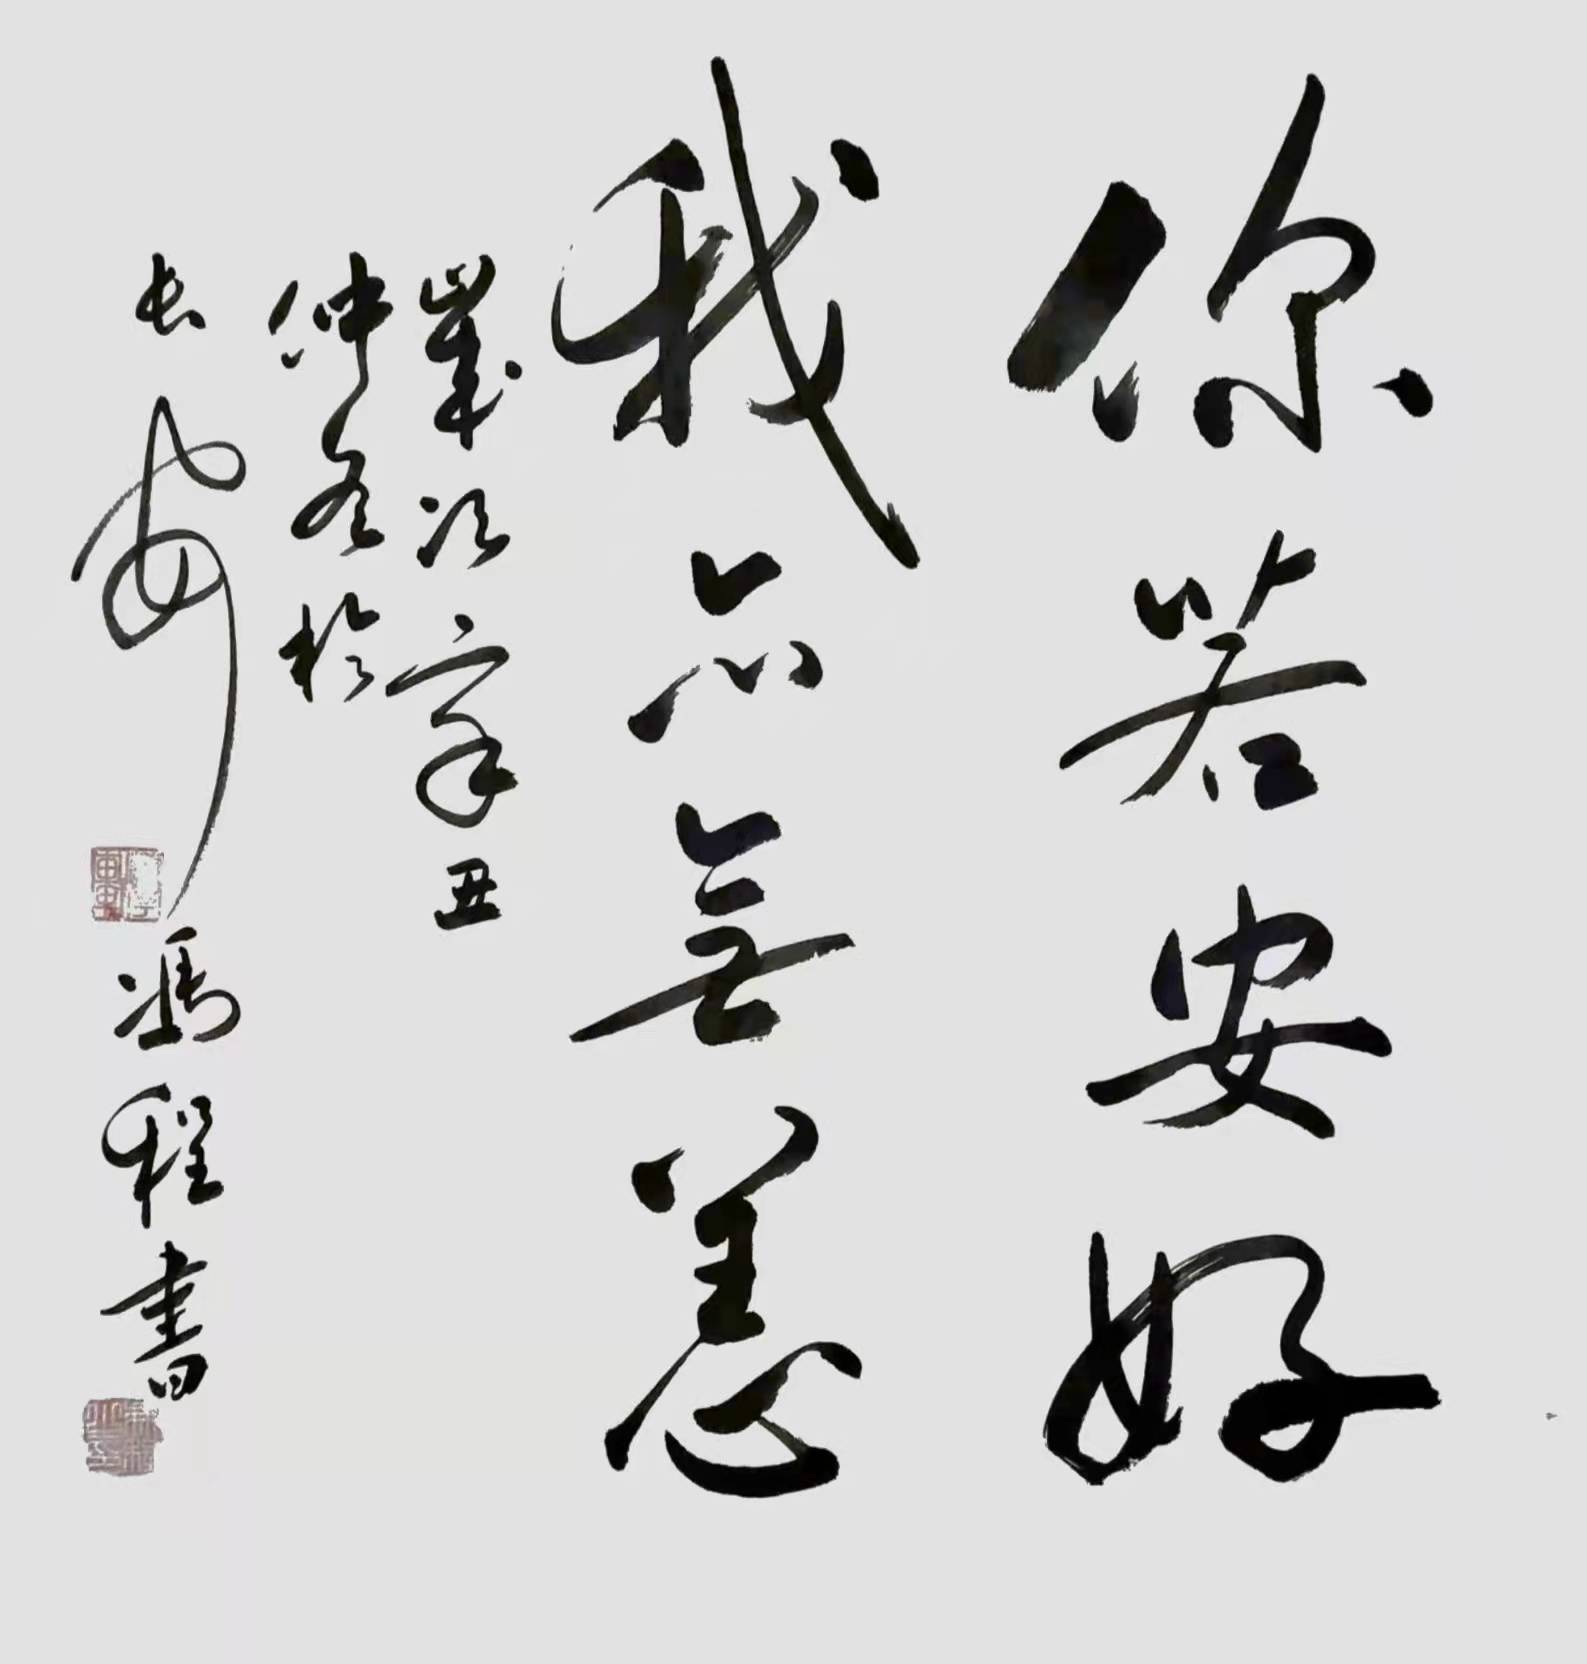 你若安好
我亦無恙
歲次辛丑
仲冬於
长安馮程書